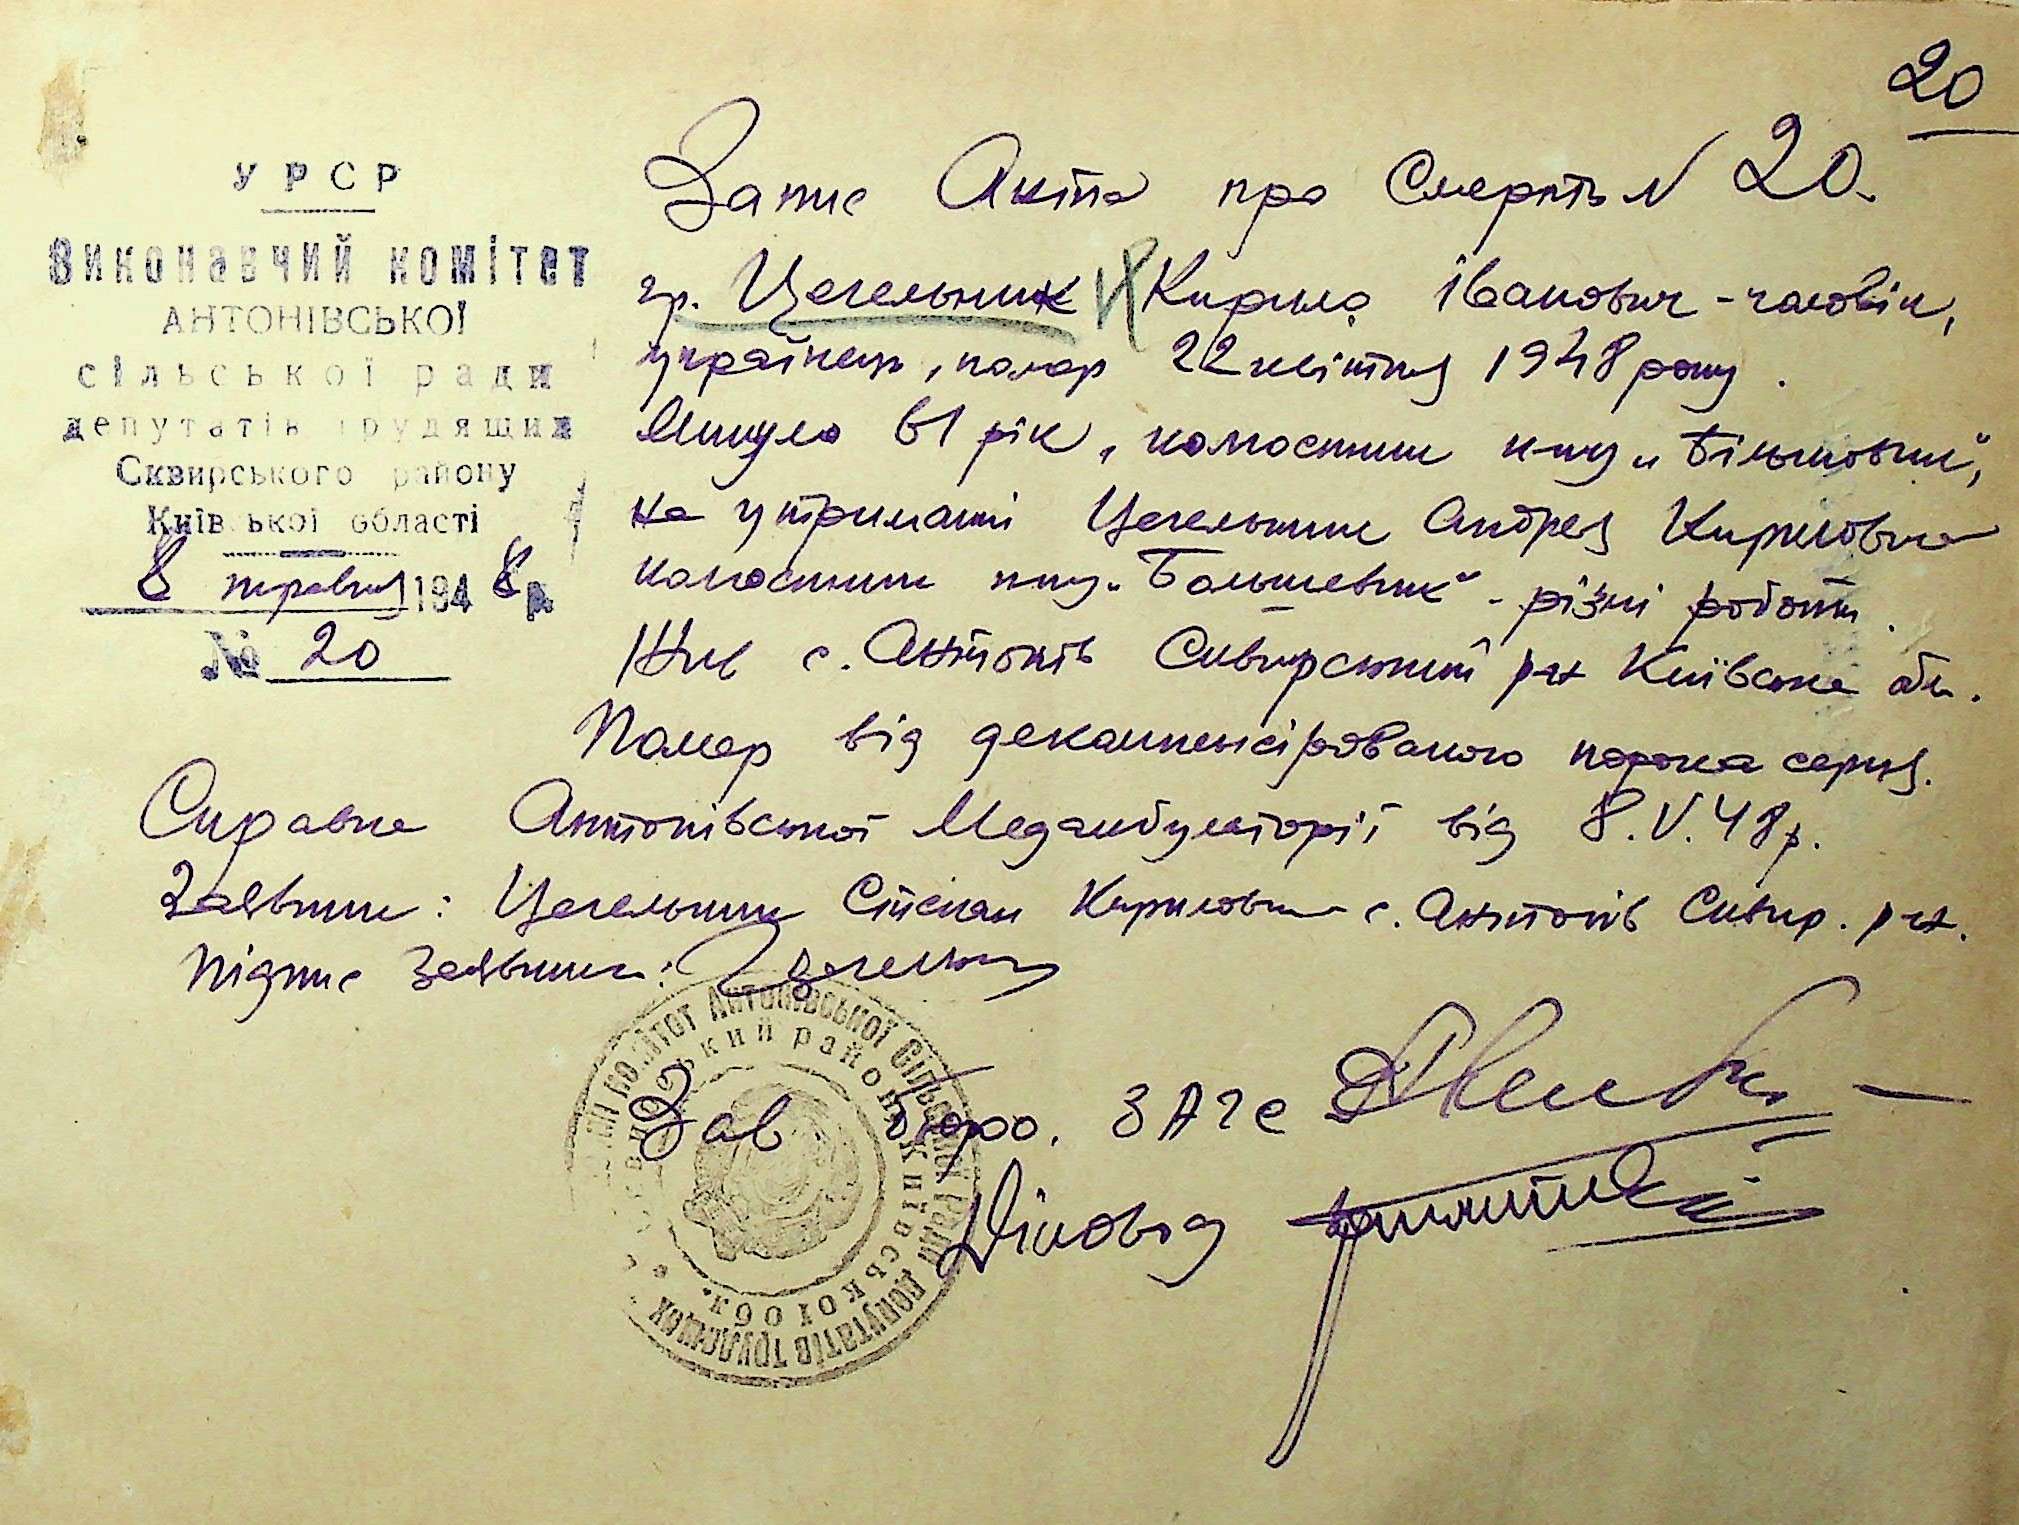 20
У Р С Р
Виконавчий комітет
АНТОНІВСЬКОЇ
сільської ради
депутатів трудящих
Сквирського району
Київської області
8 травня 1948 р.
№ 20
Запис Акта про Смерть N 20.
гр. Цегельник Кирило Іванович - чоловік,
українець, помер 22 квітня 1948 року.
Минуло 61 рік, колгоспник к-пу „Більшовик",
на утриманні Цегельник Андрея Кириловича
колгоспник к-пу „Большевик" - різні роботи.
Жив с. Антонів Сквирський р-н Київська обл.
Помер від декампенсірованого порока серця.
Справка Антонівської Медамбулаторії від 8.V.48 р.
Заявник: Цегельник Степан Кирилович с. Антонів Сквир. р-н.
Підпис Заявника:
Зав бюро. ЗАГС
Діловод
комітет Антонівської Сільської ради депутатів трудящих
Сквирський район Київської обл.